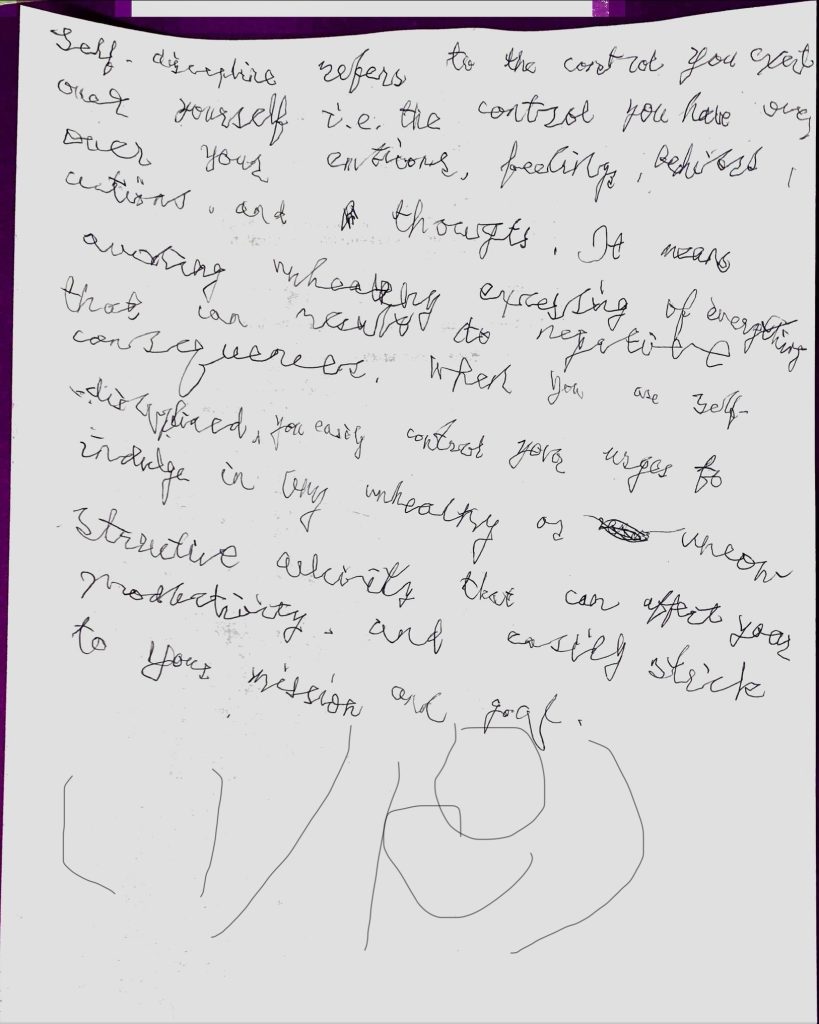 Self-discipline refers to the control you exert
over yourself i.e. the control you have over
over your emtions, feelings, behiors,
actions, and thougts. It means
avoiding unhealthy excessing of everything
that can results to negative
consequences. When you are self-
disciplined, you easily control your urges to
indulge in any unhealthy or uncon
structive activity that can affect your
productivity. and easily strick
to your mission and goal.